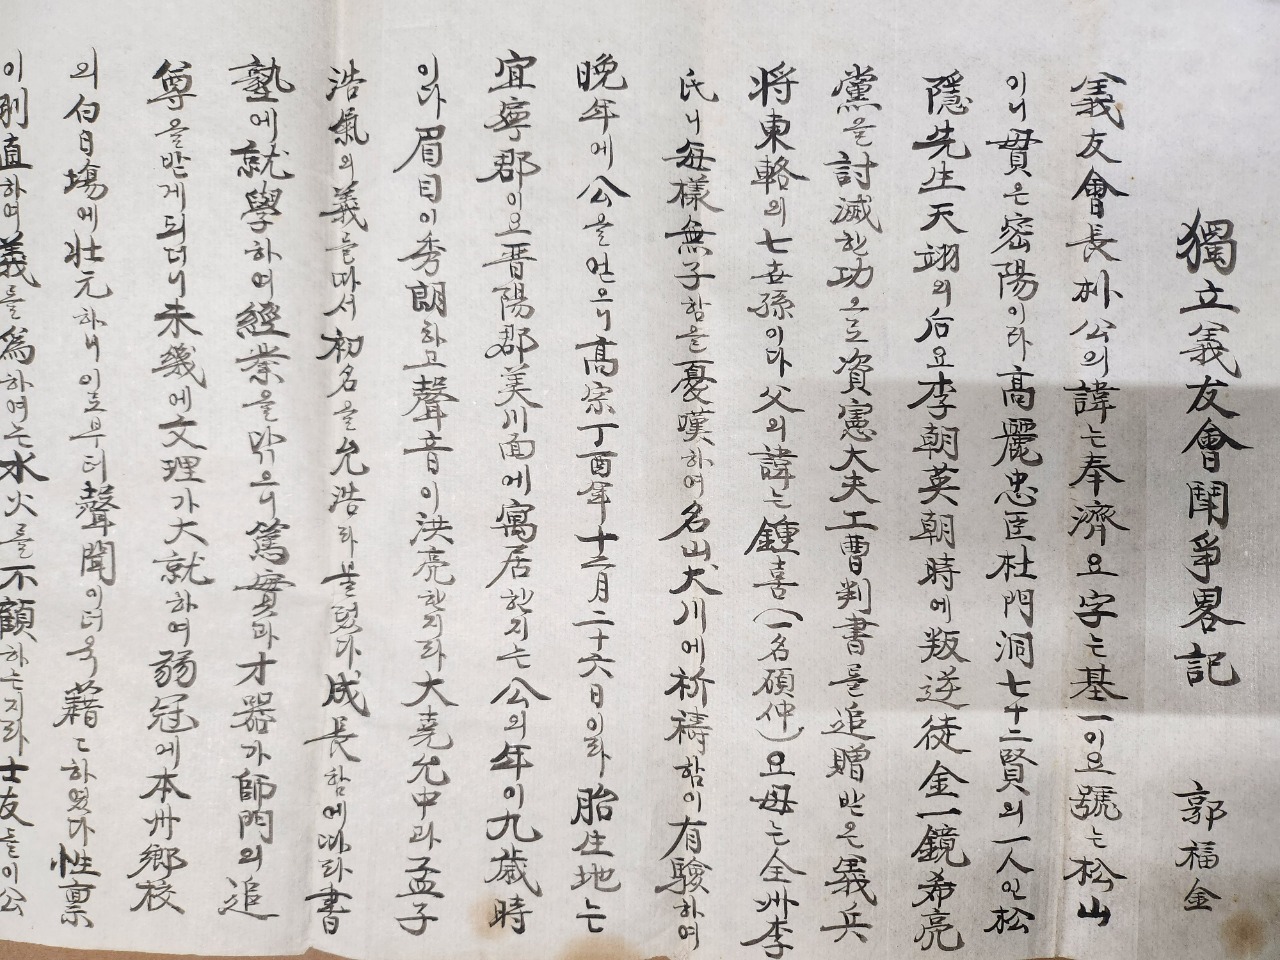 獨立義友會鬪爭畧記 郭福金
義友會長朴公의諱는奉濟요字는基一이요號는松山
이니貫은密陽이라高麗忠臣杜門洞七十二賢의一人인松
隱先生天翊의后요李朝英朝時에叛逆徒金一鏡希亮
黨을討滅한功으로資憲大夫工曹判書를追贈받은義兵
將東輅의七世孫이다父의諱는鍾喜(一名碩仲)요母는全州李
氏니每樣無子함을憂嘆하여名山大川에祈禱함이有驗하여
晩年에公을얻으니高宗丁酉年十二月二十六日이라胎生地는
宜寧郡이요晋陽郡美川面에寓居한지는公의年이九歲時
이다眉目이秀朗하고聲音이洪亮한지라大堯允中과孟子
浩氣의義를따서初名을允浩라불렀다成長함에따라書
塾에就學하여經業을닦으니篤實과才器가師門의追
尊을받게되더니未幾에文理가大就하여弱冠에本州鄕校
의白日場에壯元하니이로부터聲聞이더욱藉〻하였다性稟
이剛直하여義를爲하여는水火를不顧하는지라士友들이公